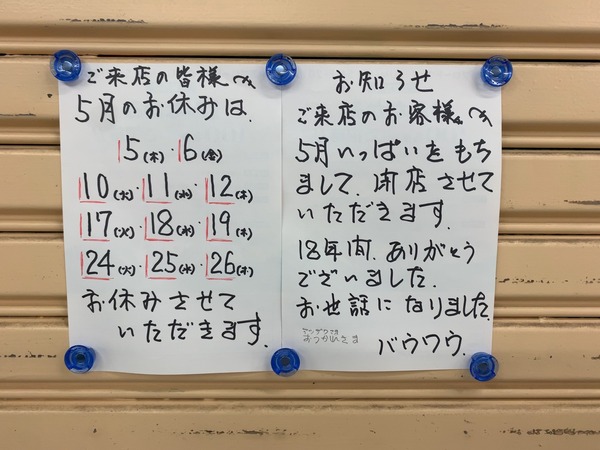 ご来店の皆様へ
5月のお休みは、
5(木)・6(金)
10(火)・11(水)・12(木)
17(火)・18(水)・19(木)
24(火)・25(水)・26(木)
お休みさせて
いただきます。
お知らせ
ご来店のお客様へ
5月いっぱいをもち
まして、閉店させて
いただきます。
18年間、ありがとう
ございました。
お世話になりました。
おつかれさま
バウワウ.